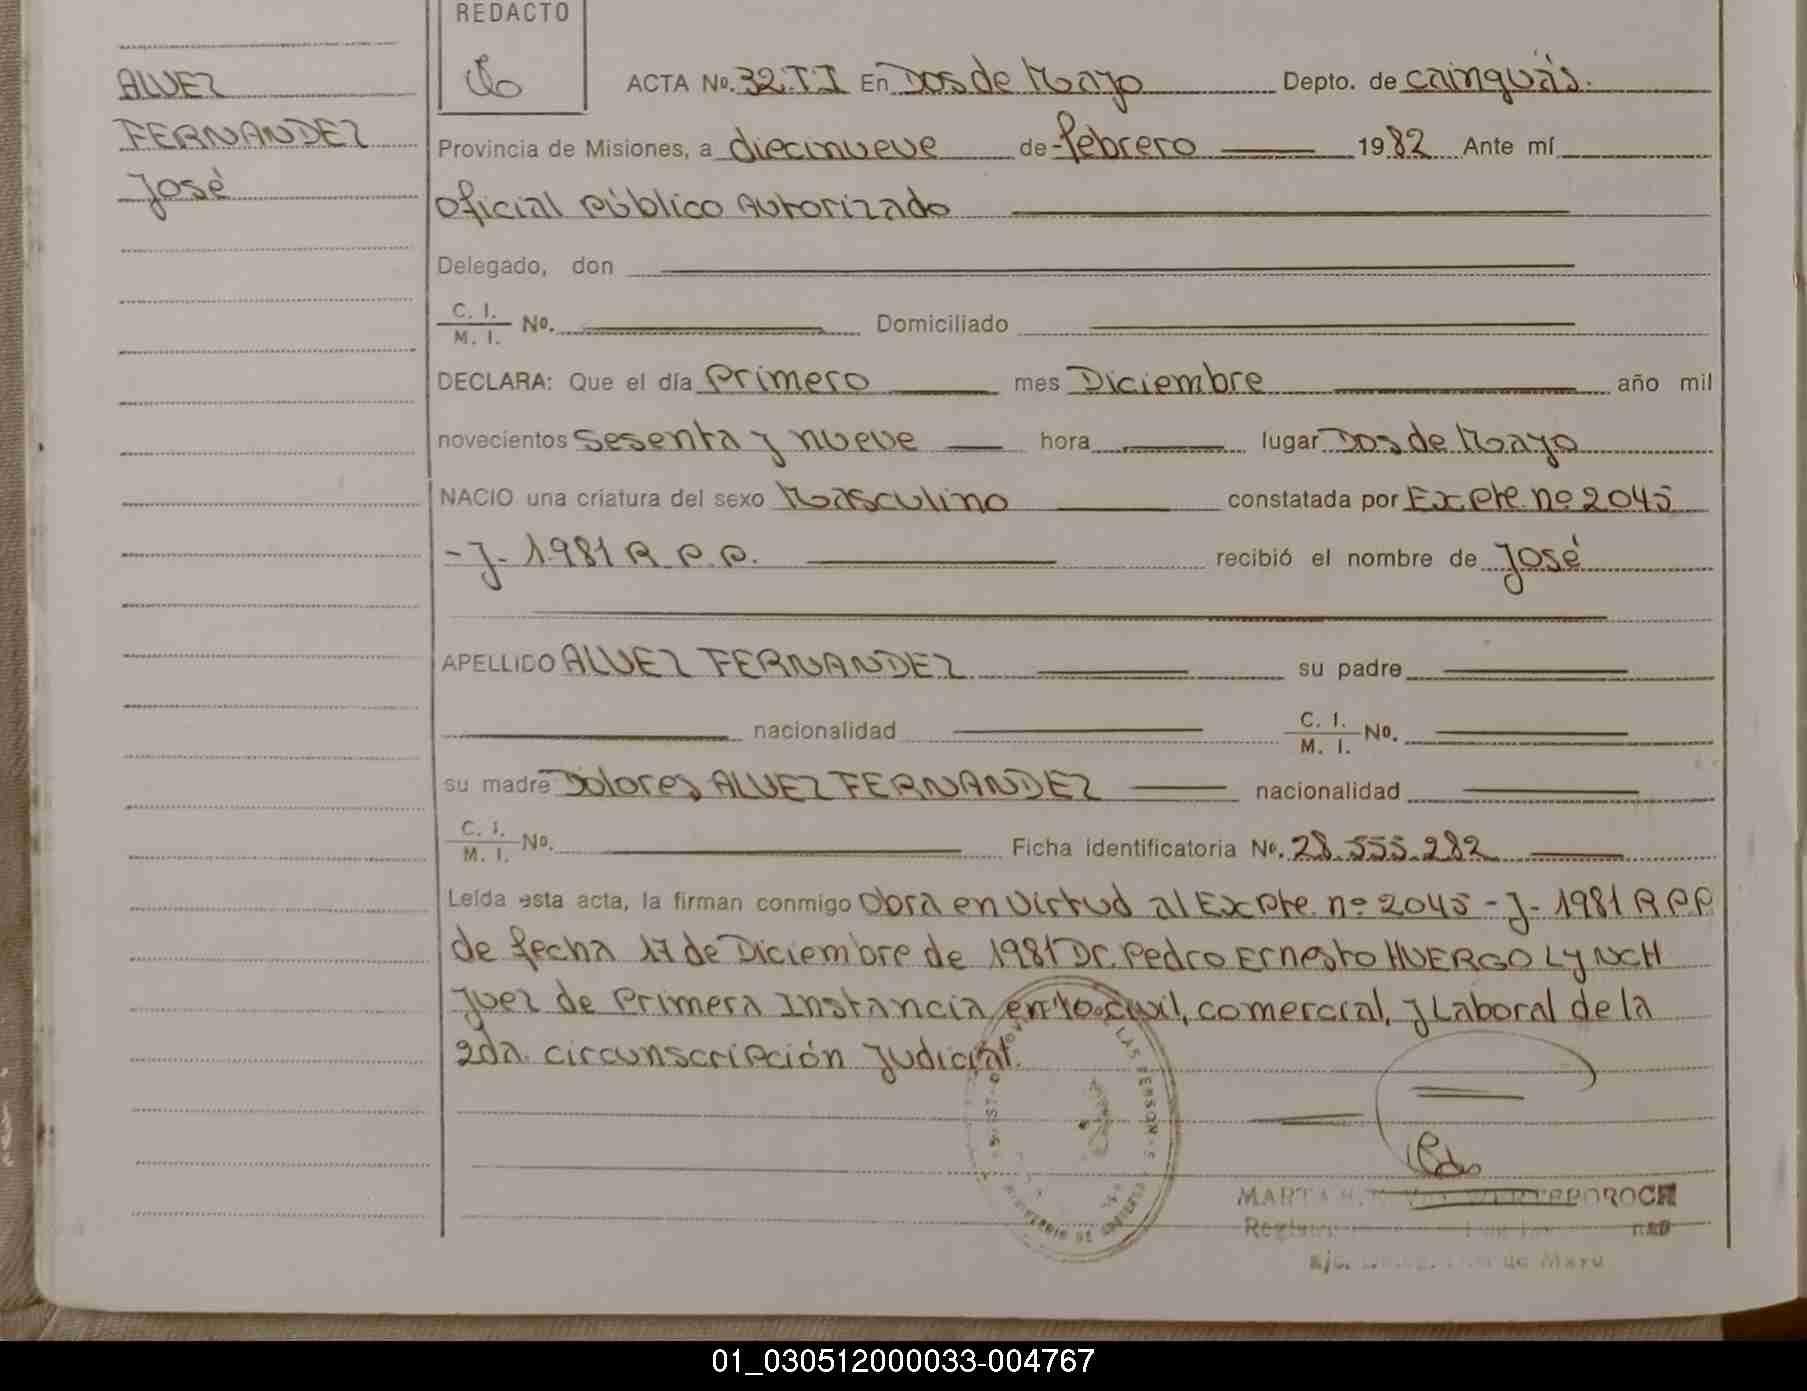 REDACTO
ALVEZ
FERNANDEZ
José
ACTA No. 32.TI En Dos de Mayo Depto. de Cainguás.
Provincia de Misiones, a diecinueve de febrero 1982 Ante mí
Oficial Público Autorizado
Delegado, don
C. I. / M. I. No. Domiciliado
DECLARA: Que el día Primero mes Diciembre año mil
novecientos sesenta y nueve hora lugar Dos de Mayo
NACIO una criatura del sexo Masculino constatada por Expte. nº 2045
-J- 1981 R.P.P. recibió el nombre de José
APELLIDO ALVEZ FERNANDEZ su padre
nacionalidad C. I. / M. I. No.
su madre Dolores ALVEZ FERNANDEZ nacionalidad
C. I. / M. I. No. Ficha identificatoria No. 28.555.282
Leída esta acta, la firman conmigo Obra en virtud al Expte. nº 2045 - J- 1981 R.P.P
de fecha 17 de Diciembre de 1981 Dr. Pedro Ernesto HUERGO LYNCH
Juez de Primera Instancia en lo civil, comercial, y Laboral de la
2da. circunscripción Judicial.
LAS PERSONAS
MARTA
de Mayo
01_030512000033-004767